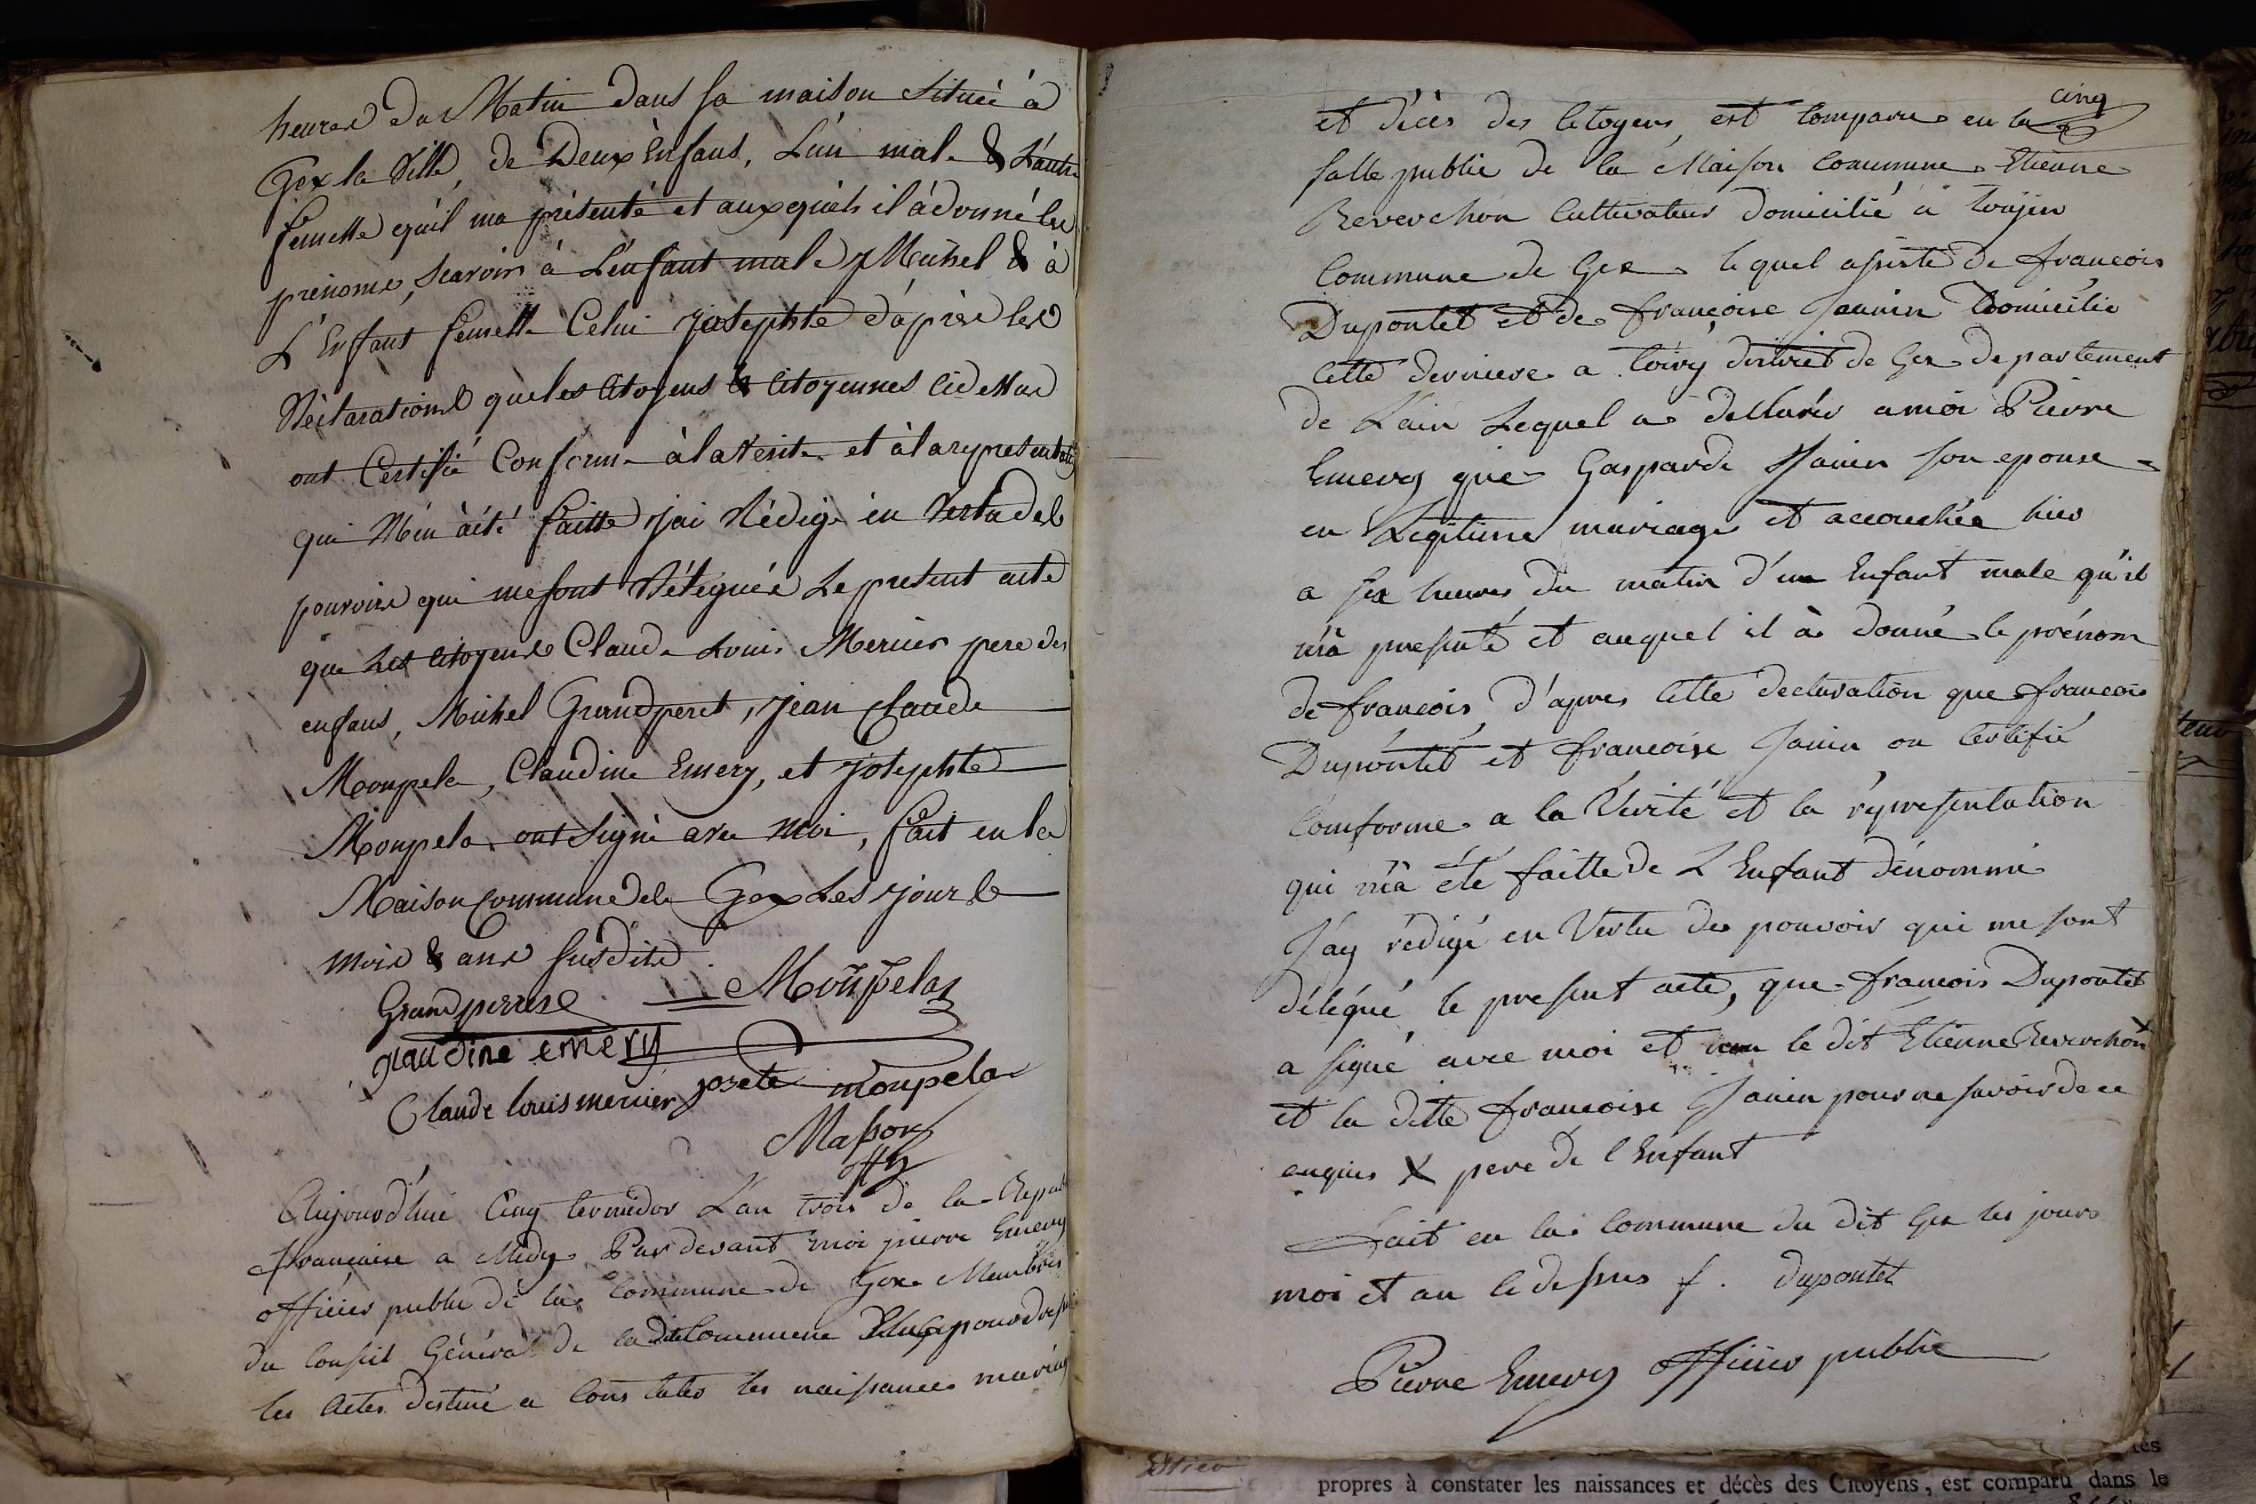 heures du Matin dans sa maison située à
Gex la Ville, de Deux Enfans, L'un mal. & L'autre
femelle qu'il ma présenté et auxquels il à donné les
prenoms, scavoir à L'enfant male Michel & à
L'Enfant femelle Celui Josephte d'après les
Déclarations que les Citoyens & Citoyennes cidessus
ont Certifié Conforme à la Verité et à la representation
qui M'en à été faitte j'ai Rédigé en Vertu des
pouvoirs qui me sont Délegués Le present acte
que Les Citoyens Claude Louis Mercier pere des
enfans, Michel Grandperret, Jean Claude
Monpela, Claudine Emery, et Josephte
Monpela ont signé avec Moi, fait en la
Maison Commune de Gex Les jour
mois & ans susdits
Grandperret Monpelas
glaudine emery
Claude louis mercier josete monpela
Masson
offr
Aujourd'hui Cinq termidor L'an trois de la Repub
française a Midy Par devant moi pierre Emery
officier public de la Commune de Gex Membres
du Conseil Général de la dite Commune pour dresser
les Actes destiné a Constater les naissances mariag
cinq
et décès des Citoyens, est Comparu en la
salle public de la Maison Commune Etienne
Reverchon Cultivateur Domicilié a tougin
Commune de Gex lequel assisté de françois
Dupontet et de françoise Janin Domicilié
Cette derniere a toiry district de Gex departement
de L'ain Lequel a dellaré a moi Pierre
Emery que Gasparde Janin son epouse
en Legitime mariage et accouchée hier
a sex heures du matin d'un Enfant male qu'il
m'a presenté et auquel il à donné le prénom
de françois d'apres Cette declaration que françois
Dupontet et francoise Janin on Certifié
Comforme a la Vérité et la répresentation
qui m'a été faitte de L Enfant dénommé
J'ay rédigé en Vertu des pouvoir qui me sont
délégué le present acte, que francois Dupontet
a signé avec moi et non le dit Etienne Reverchon X
et la ditte francoise Janin pour ne savoir de ce
enquis X pere de l Enfant
Fait en la Commune du dit Gex les jour
moi et an ci dessus f. dupontet
Pierre Emery officier public
propres à constater les naissances et décès des Citoyens, est comparu dans le